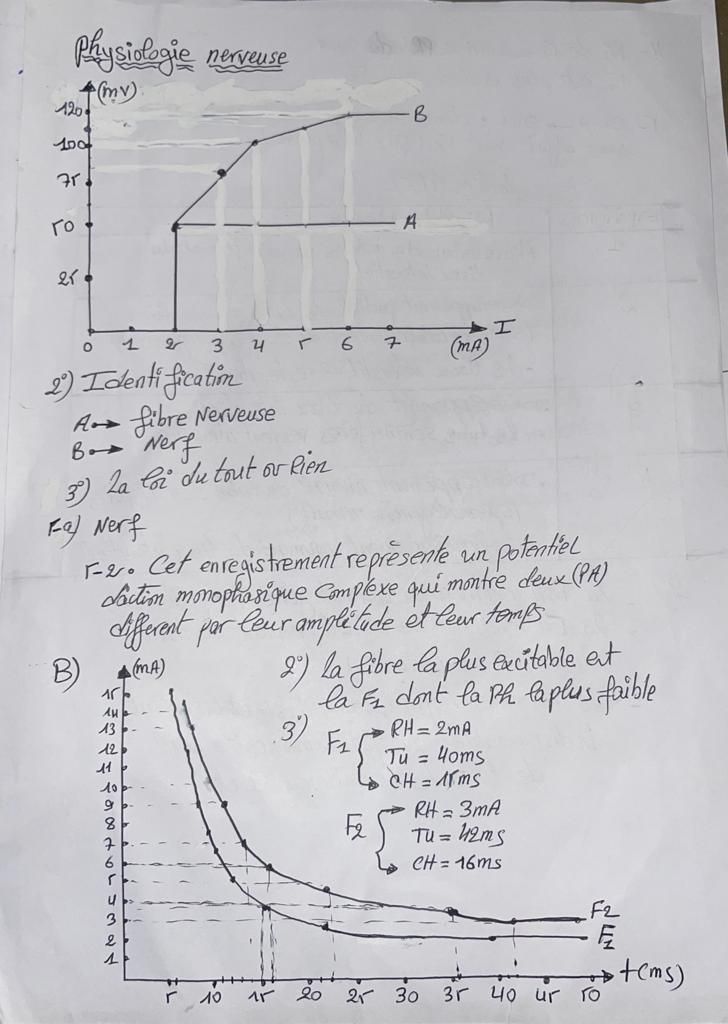 Physiologie nerveuse
(mV)
120
100
75
50
25
B
A
0 1 2 3 4 5 6 7
I
(mA)
2°) Identification
A → fibre Nerveuse
B → Nerf
3°) La loi du tout ou Rien
a) Nerf
Cet enregistrement représente un potentiel
d'action monophasique complexe qui montre deux (PA)
different par leur amplitude et leur temps
B)
(mA)
15
14
13
12
11
10
9
8
7
6
5
4
3
2
1
2°) la fibre la plus excitable est
la F1 dont la Rh la plus faible
3°)
F1
RH = 2mA
Tu = 40ms
CH = 15ms
F2
RH = 3mA
Tu = 42ms
CH = 16ms
F2
F1
5 10 15 20 25 30 35 40 45 50
t(ms)